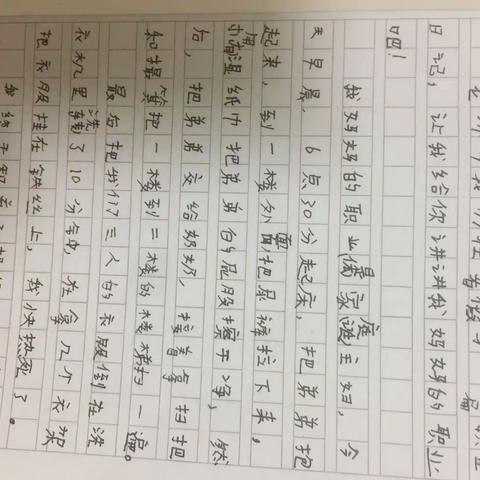 日记，让我给你讲讲我妈妈的职业
吧！
我妈妈的职业是家庭主妇，今
天早晨，6点30分起床，把弟弟抱
起来，到一楼外面把尿裤拉下来，
用湿纸巾把弟弟的屁股擦干净，然
后，把弟弟交给奶奶，接着拿扫把
和撮箕把一楼到二楼的楼梯扫一遍。
最后把我们三人的衣服倒在洗
衣机里洗了10分钟，在拿几个衣架
把衣服挂在铁丝上，我快热死了。